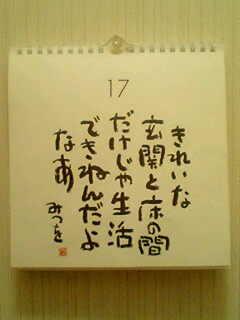 17
きれいな
玄関と床の間
だけじゃ生活
できねんだよ
なあ
みつを